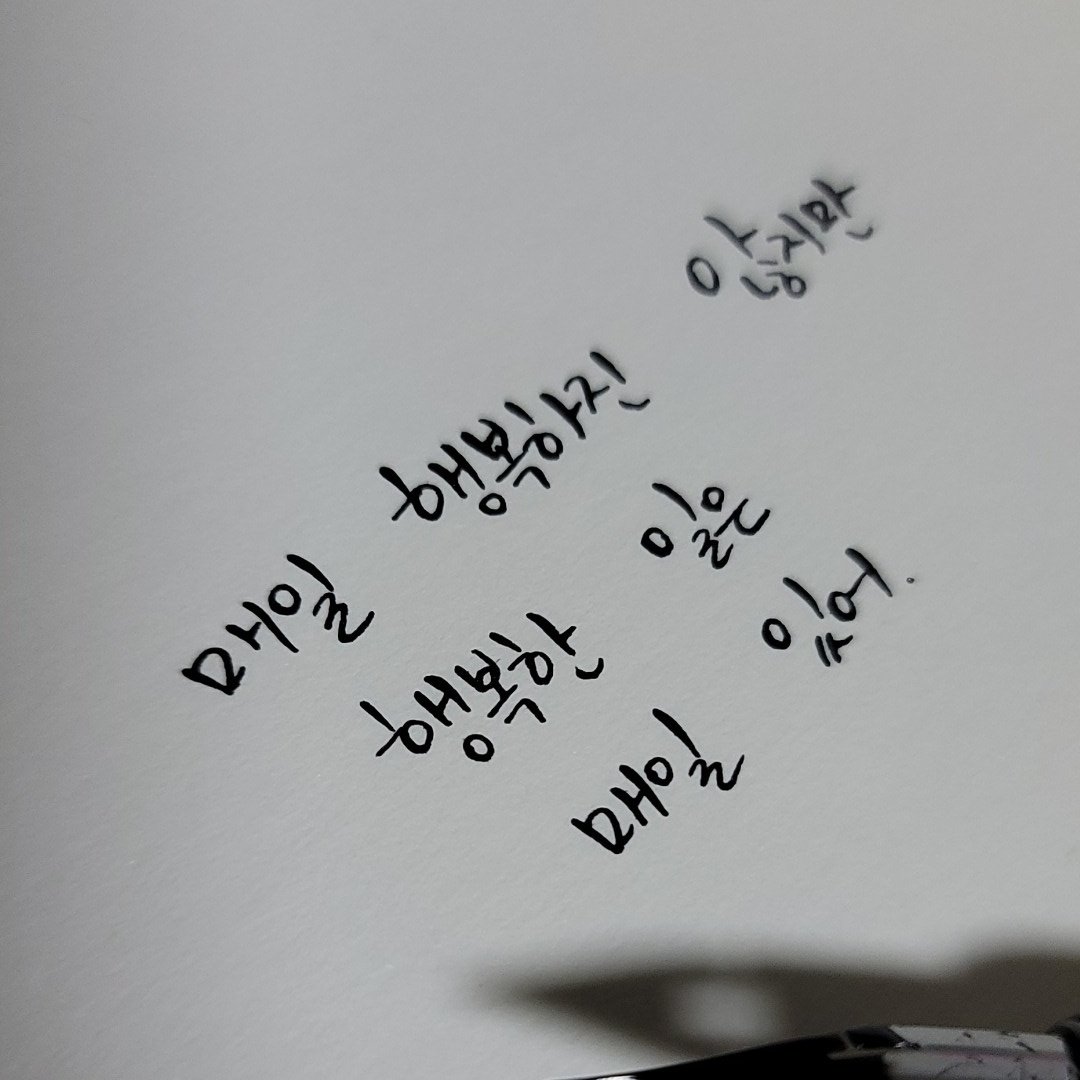 매일 행복하진 않지만
행복한 일은
매일 있어.